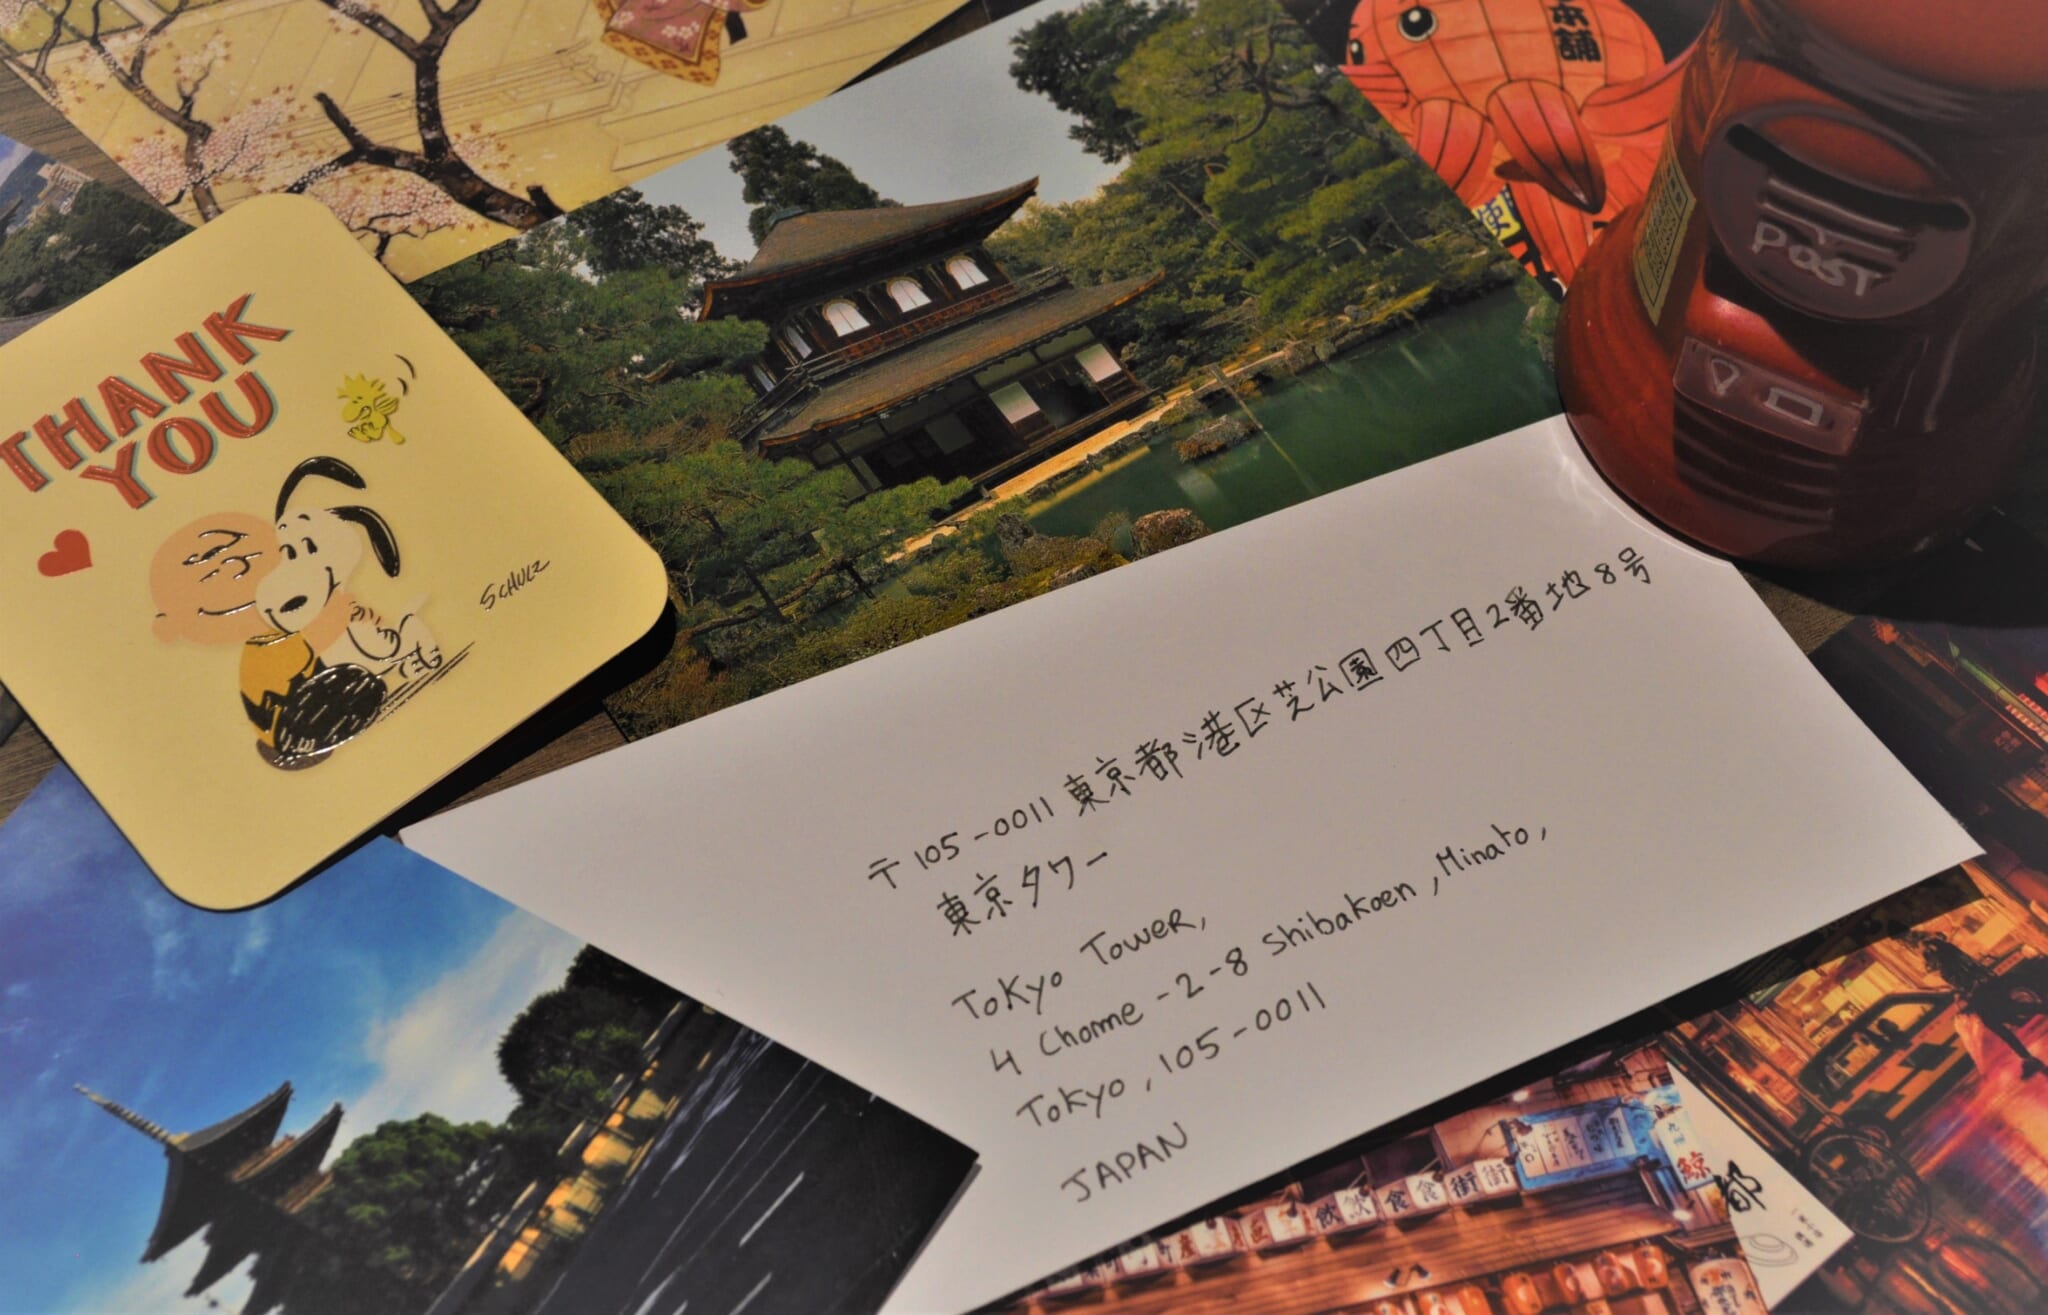 本舗
使
POST
THANK
YOU
SCHULZ
〒105-0011 東京都港区芝公園四丁目2番地8号
東京タワー
Tokyo Tower,
4 Chome-2-8 Shibakoen, Minato,
Tokyo, 105-0011
JAPAN
飲飲食食街街
九州
鯨
都